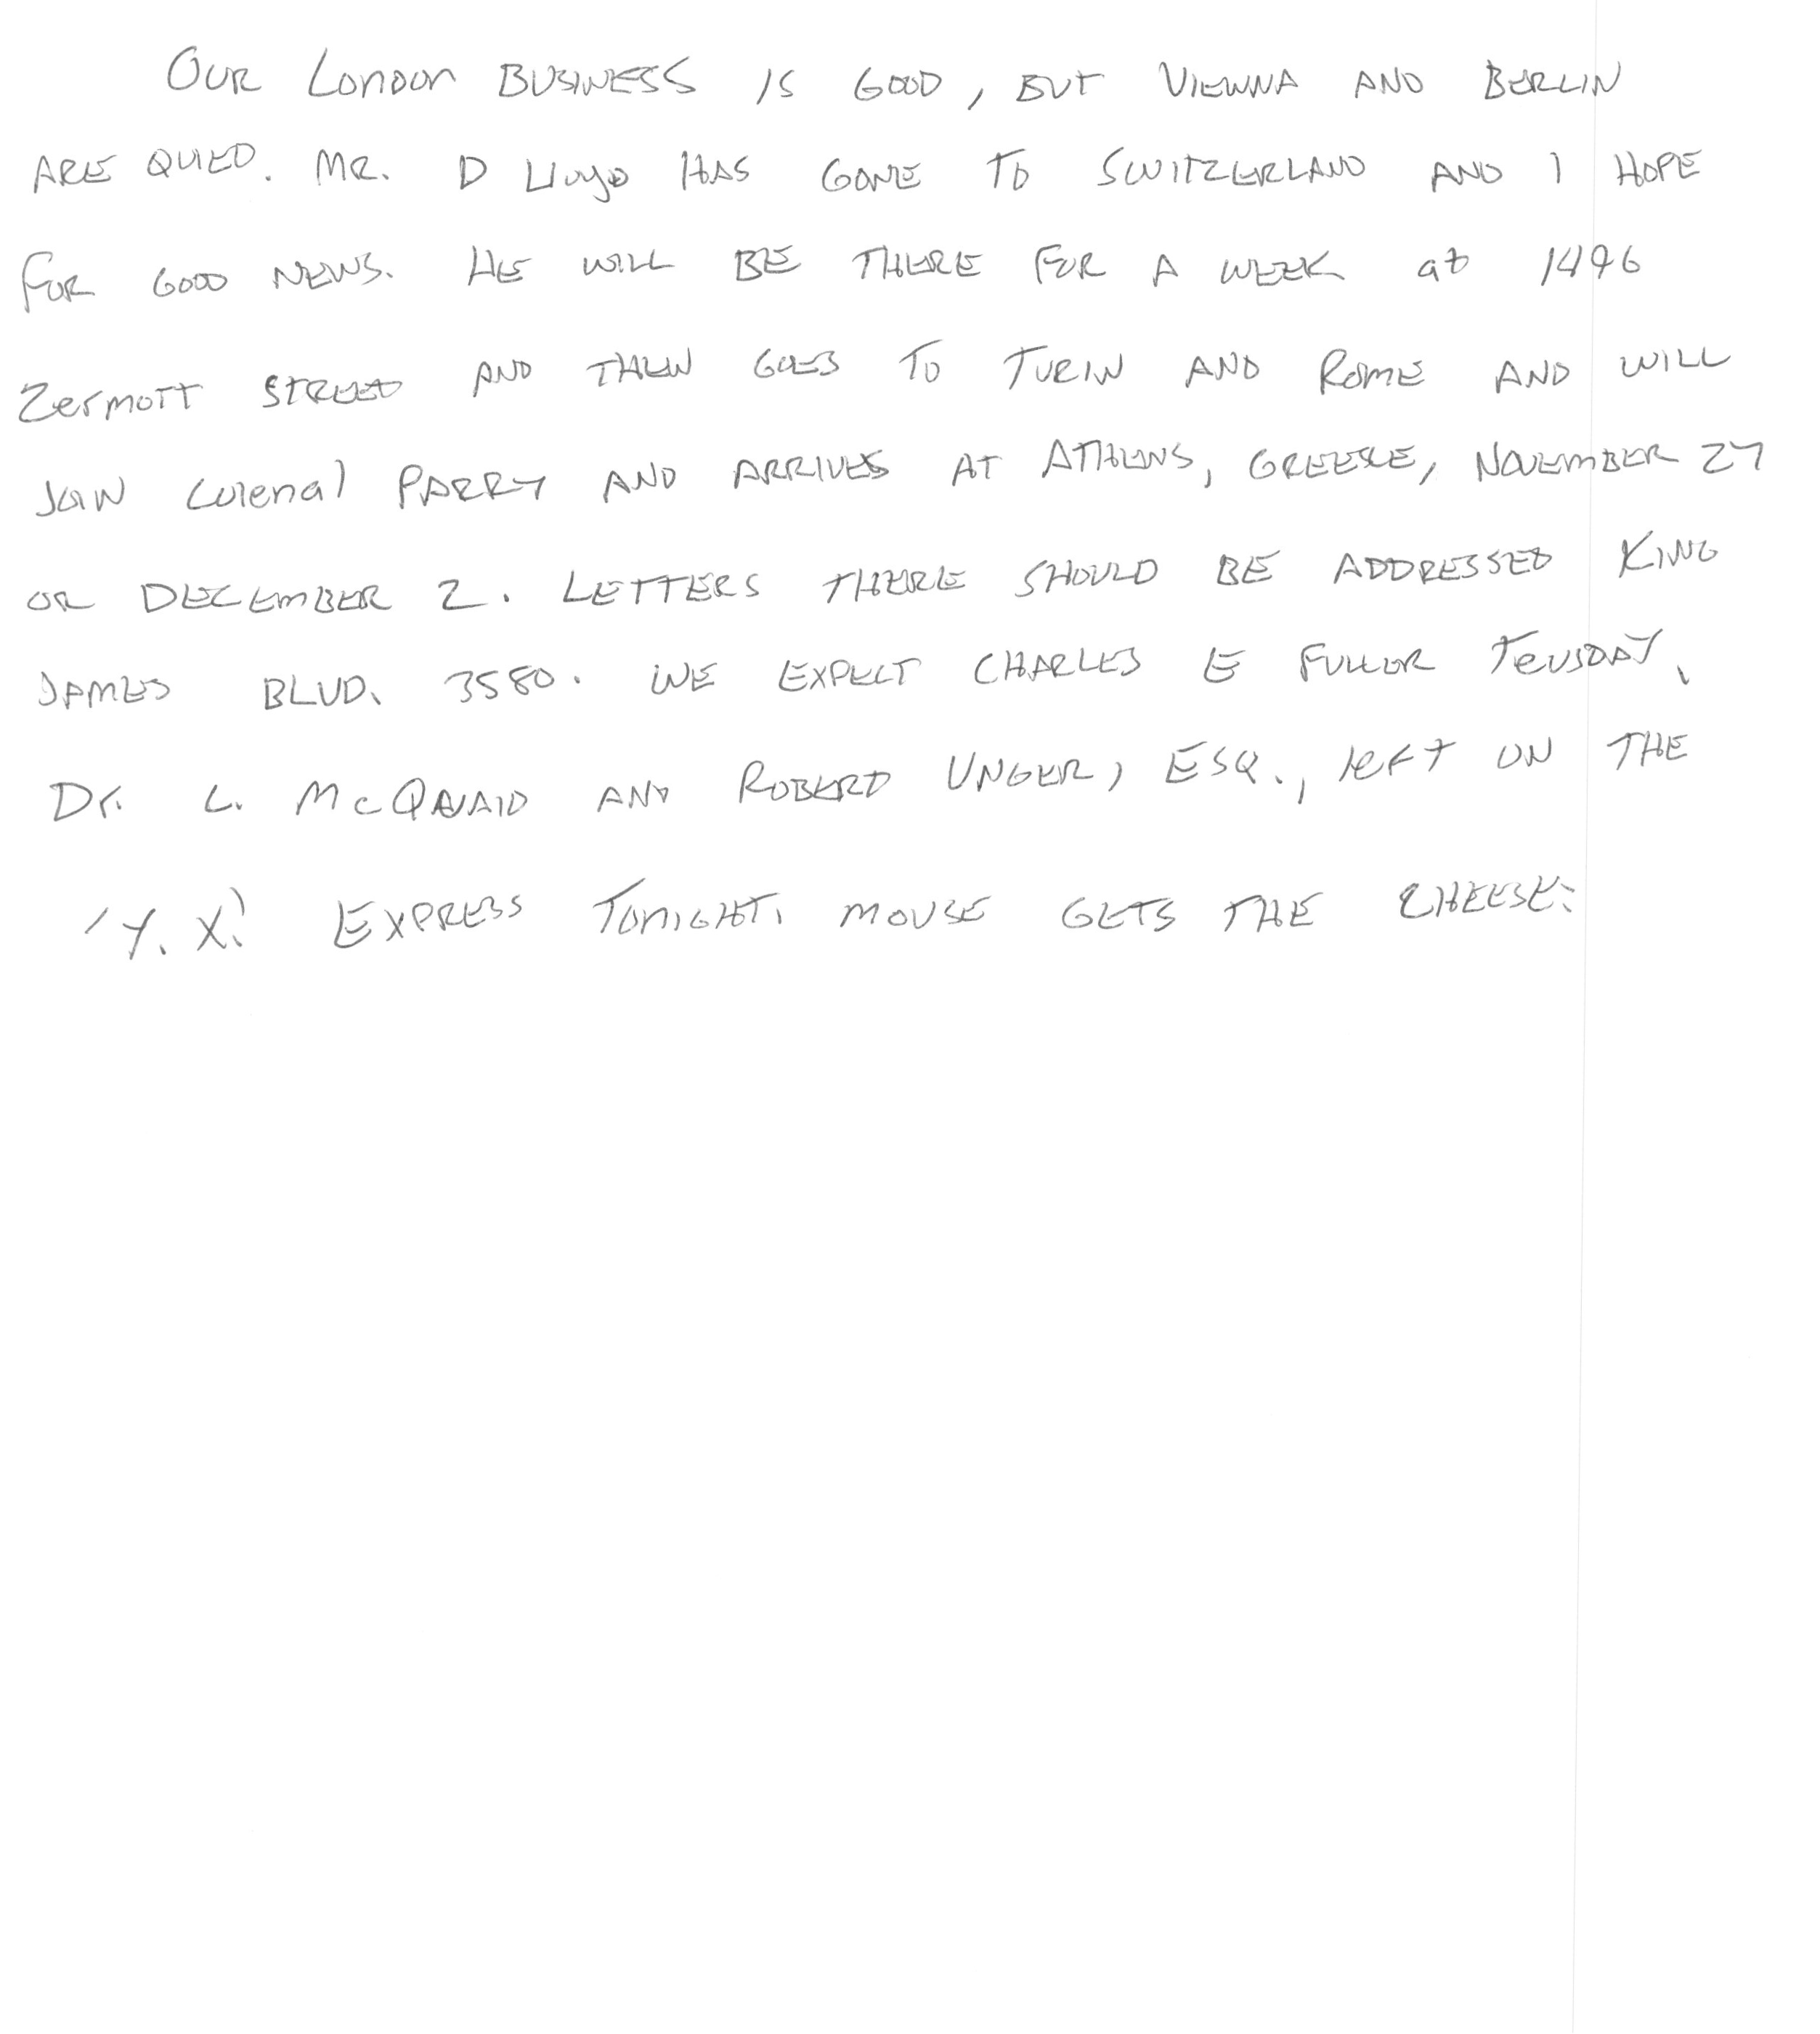 OUR LONDON BUSINESS IS GOOD, BUT VIENNA AND BERLIN
ARE QUIED. MR. D Lloyd HAS GONE TO SWITZERLAND AND I HOPE
FOR GOOD NEWS. HE WILL BE THERE FOR A WEEK at 1496
Zermott STREET AND THEN GOES TO TURIN AND ROME AND WILL
JOIN Colenal PARRY AND ARRIVES AT ATHENS, GREECE, NOVEMBER 27
OR DECEMBER 2. LETTERS THERE SHOULD BE ADDRESSED KING
JAMES BLVD. 3580. WE EXPECT CHARLES E FULLER TEUSDAY.
Dr. L. McQUAID AND ROBERT UNGER, ESQ., left ON THE
'Y. X.' EXPRESS TONIGHT. MOUSE GETS THE CHEESE.